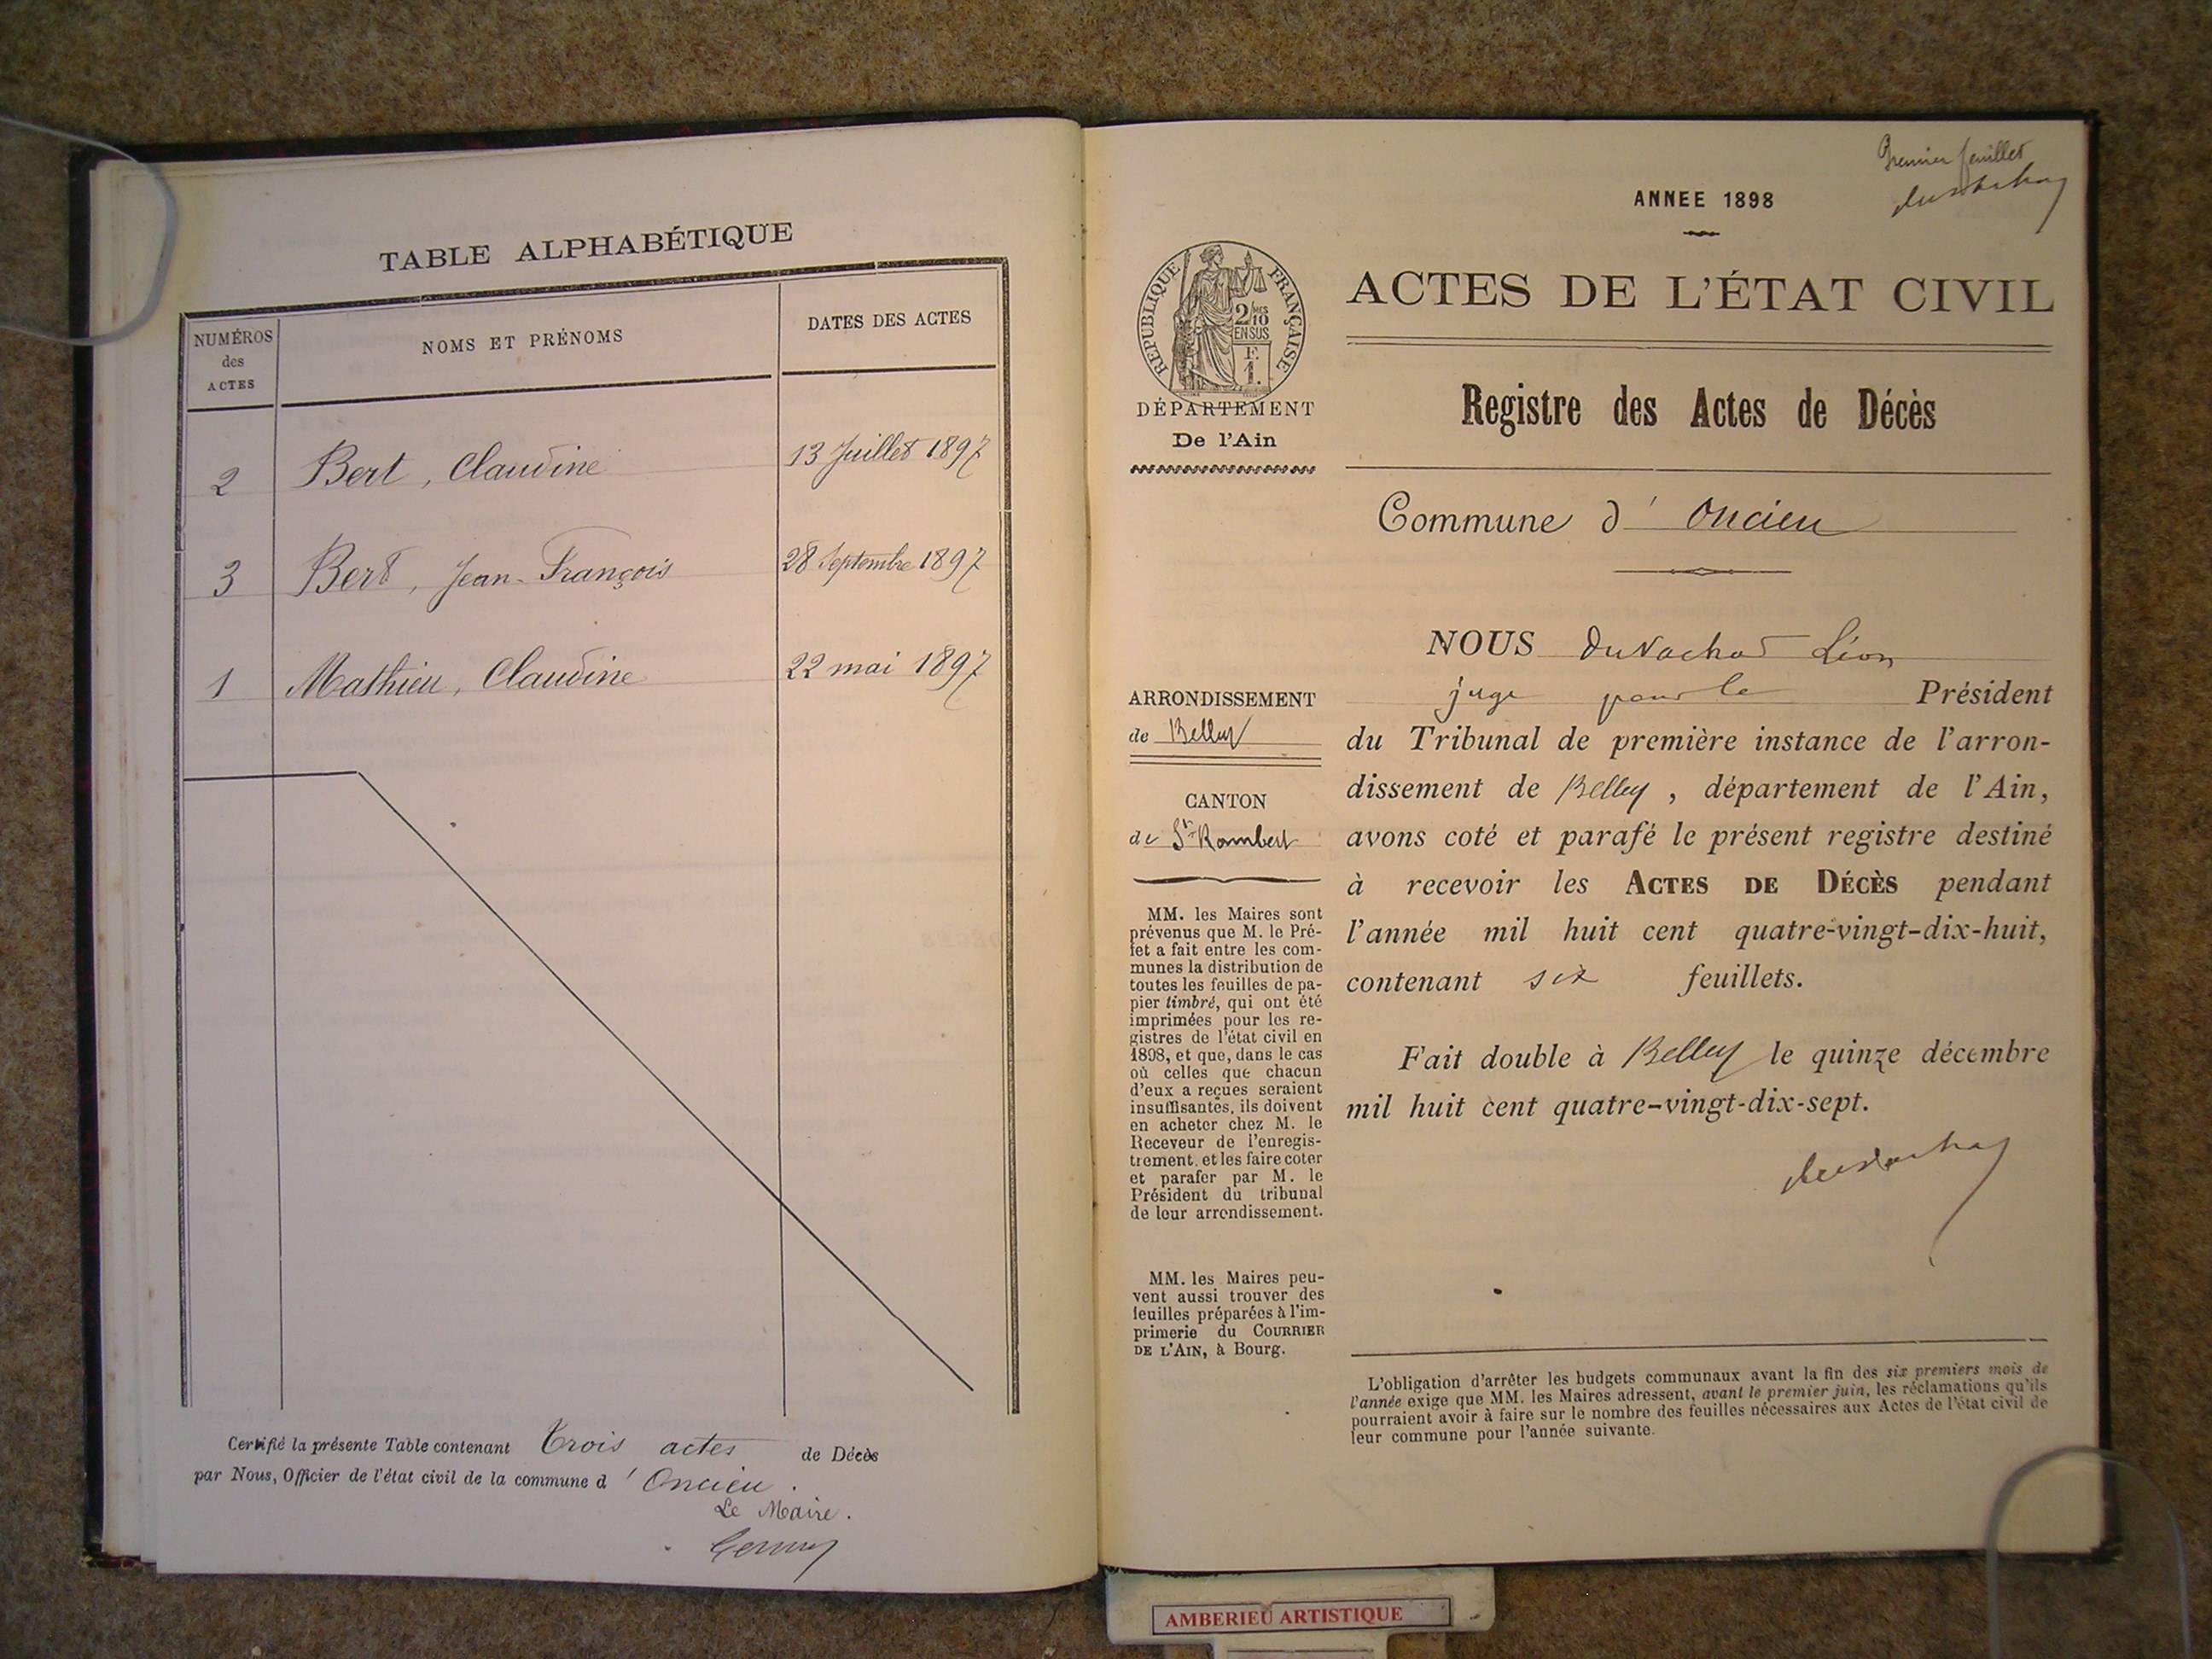 TABLE ALPHABÉTIQUE
NUMÉROS
des
ACTES
NOMS ET PRÉNOMS
DATES DES ACTES
2 Bert, Claudine 13 Juillet 1897
3 Bert, Jean-François 28 Septembre 1897
1 Mathieu, Claudine 22 mai 1897
Certifié la présente Table contenant Trois actes de Décès
par Nous, Officier de l'état civil de la commune d'Oncieu.
Le Maire.
Premier feuillet
ANNEE 1898
RÉPUBLIQUE FRANÇAISE
2/10 MES
EN SUS
F.
1.
DÉPARTEMENT
De l'Ain
ACTES DE L'ÉTAT CIVIL
Registre des Actes de Décès
Commune d'Oncieu
ARRONDISSEMENT
de Belley
CANTON
de St Rambert
MM. les Maires sont
prévenus que M. le Pré-
fet a fait entre les com-
munes la distribution de
toutes les feuilles de pa-
pier timbré, qui ont été
imprimées pour les re-
gistres de l'état civil en
1898, et que, dans le cas
où celles que chacun
d'eux a reçues seraient
insuffisantes, ils doivent
en acheter chez M. le
Receveur de l'enregis-
trement, et les faire coter
et parafer par M. le
Président du tribunal
de leur arrondissement.
MM. les Maires peu-
vent aussi trouver des
feuilles préparées à l'im-
primerie du COURRIER
DE L'AIN, à Bourg.
NOUS Léon
juge pour le Président
du Tribunal de première instance de l'arron-
dissement de Belley, département de l'Ain,
avons coté et parafé le présent registre destiné
à recevoir les ACTES DE DÉCÈS pendant
l'année mil huit cent quatre-vingt-dix-huit,
contenant six feuillets.
Fait double à Belley le quinze décembre
mil huit cent quatre-vingt-dix-sept.
L'obligation d'arrêter les budgets communaux avant la fin des six premiers mois de
l'année exige que MM. les Maires adressent, avant le premier juin, les réclamations qu'ils
pourraient avoir à faire sur le nombre des feuilles nécessaires aux Actes de l'état civil de
leur commune pour l'année suivante.
AMBERIEU ARTISTIQUE